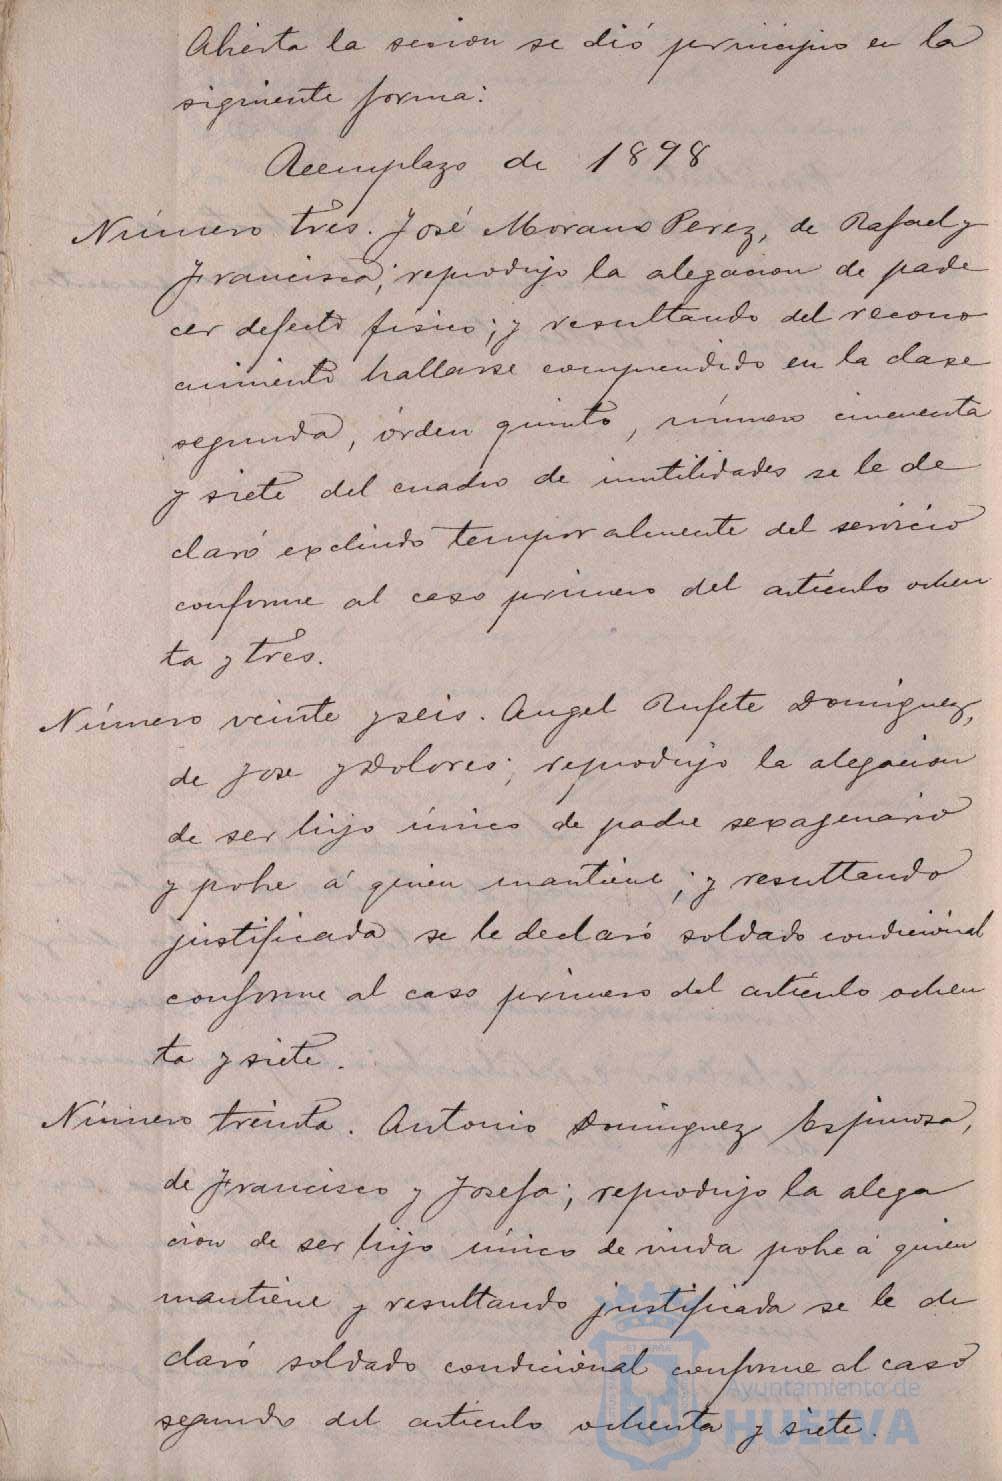 Abierta la sesion se dió principio en la
siguiente forma:
Reemplazo de 1898
Número tres. José Morano Perez, de Rafael y
Francisca; reprodujo la alegacion de pade
cer defecto fisico; y resultando del recono
cimiento hallarse comprendido en la clase
segunda, órden quinto, número cincuenta
y siete del cuadro de inutilidades se le de
claró excluido temporalmente del servicio
conforme al caso primero del artículo ochen
ta y tres.
Número veinte y seis. Angel Rufete Dominguez,
de Jose y Dolores; reprodujo la alegacion
de ser hijo único de padre sexagenario
y pobre á quien mantiene; y resultando
justificada se le declaró soldado condicional
conforme al caso primero del artículo ochen
ta y siete.
Número treinta. Antonio Dominguez Espinosa,
de Francisco y Josefa; reprodujo la alega
cion de ser hijo único de viuda pobre á quien
mantiene y resultando justificada se le de
claró soldado condicional conforme al caso
segundo del artículo ochenta y siete.
Ayuntamiento de
HUELVA